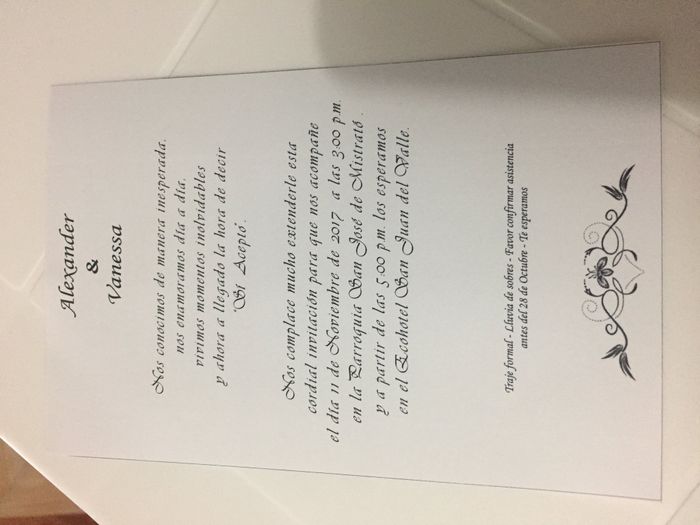 Alexander
&
Vanessa
Nos conocimos de manera inesperada,
nos enamoramos día a día,
vivimos momentos inolvidables
y ahora a llegado la hora de decir
"Si Acepto".
Nos complace mucho extenderle esta
cordial invitación para que nos acompañe
el día 11 de Noviembre de 2017 a las 3:00 p.m.
en la Parroquia San José de Mistrató .
y a partir de las 5:00 p.m. los esperamos
en el Ecohotel San Juan del Valle.
Traje formal - Lluvia de sobres - Favor confirmar asistencia
antes del 28 de Octubre - Te esperamos